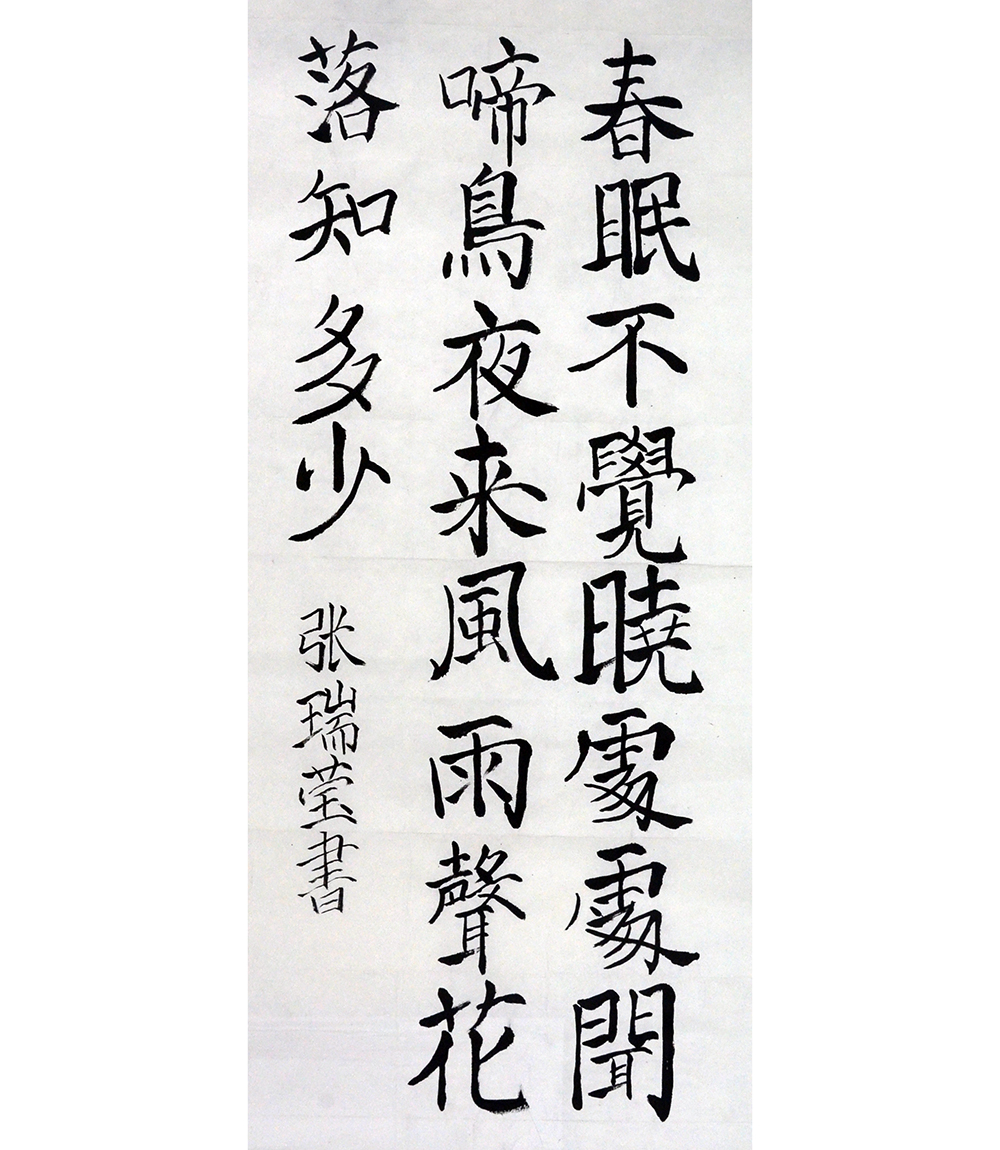 春眠不覺曉處處聞
啼鳥夜来風雨聲花
落知多少
张瑞莹書